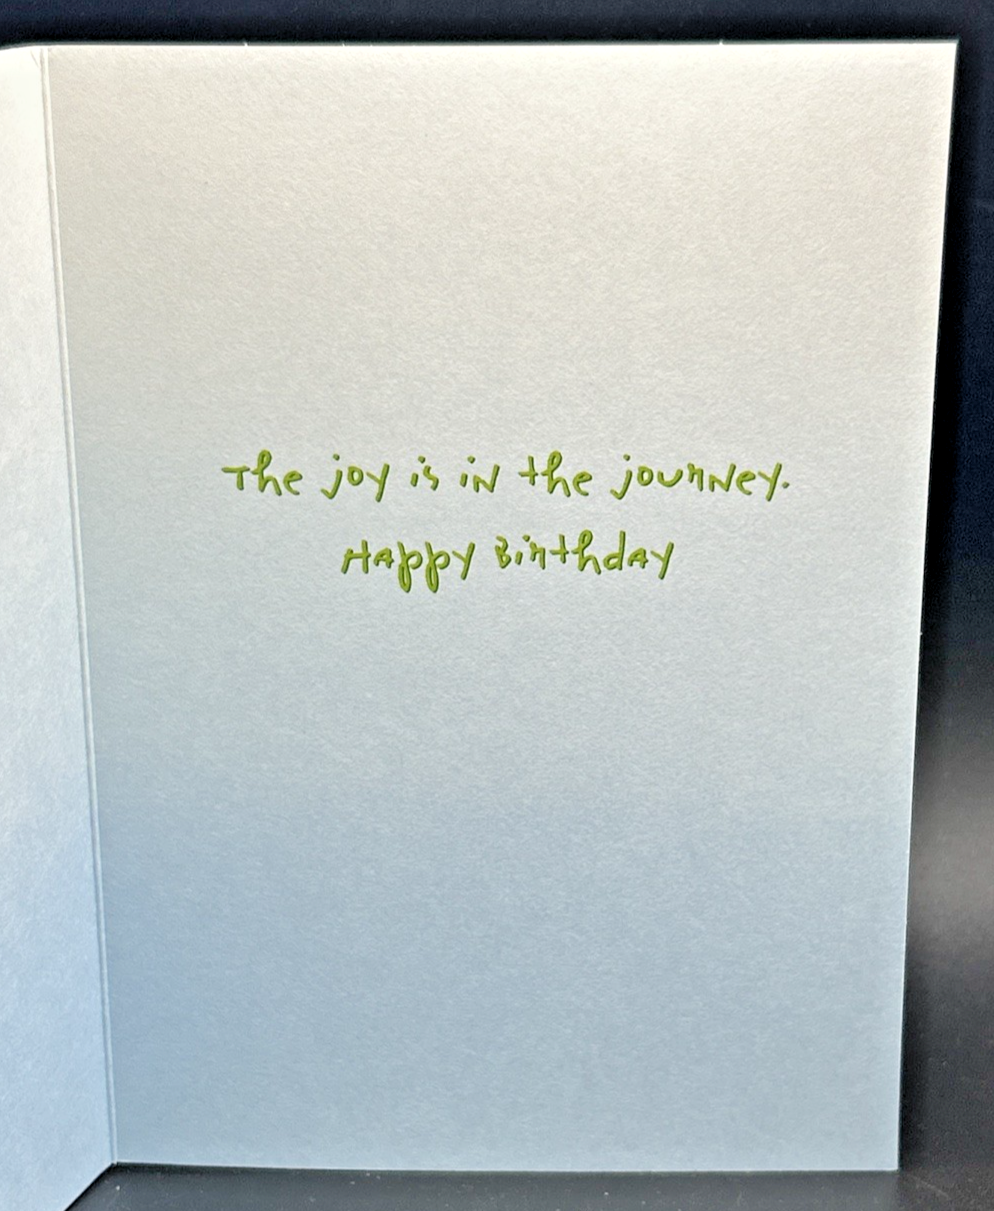 The joy is in the journey.
Happy Birthday